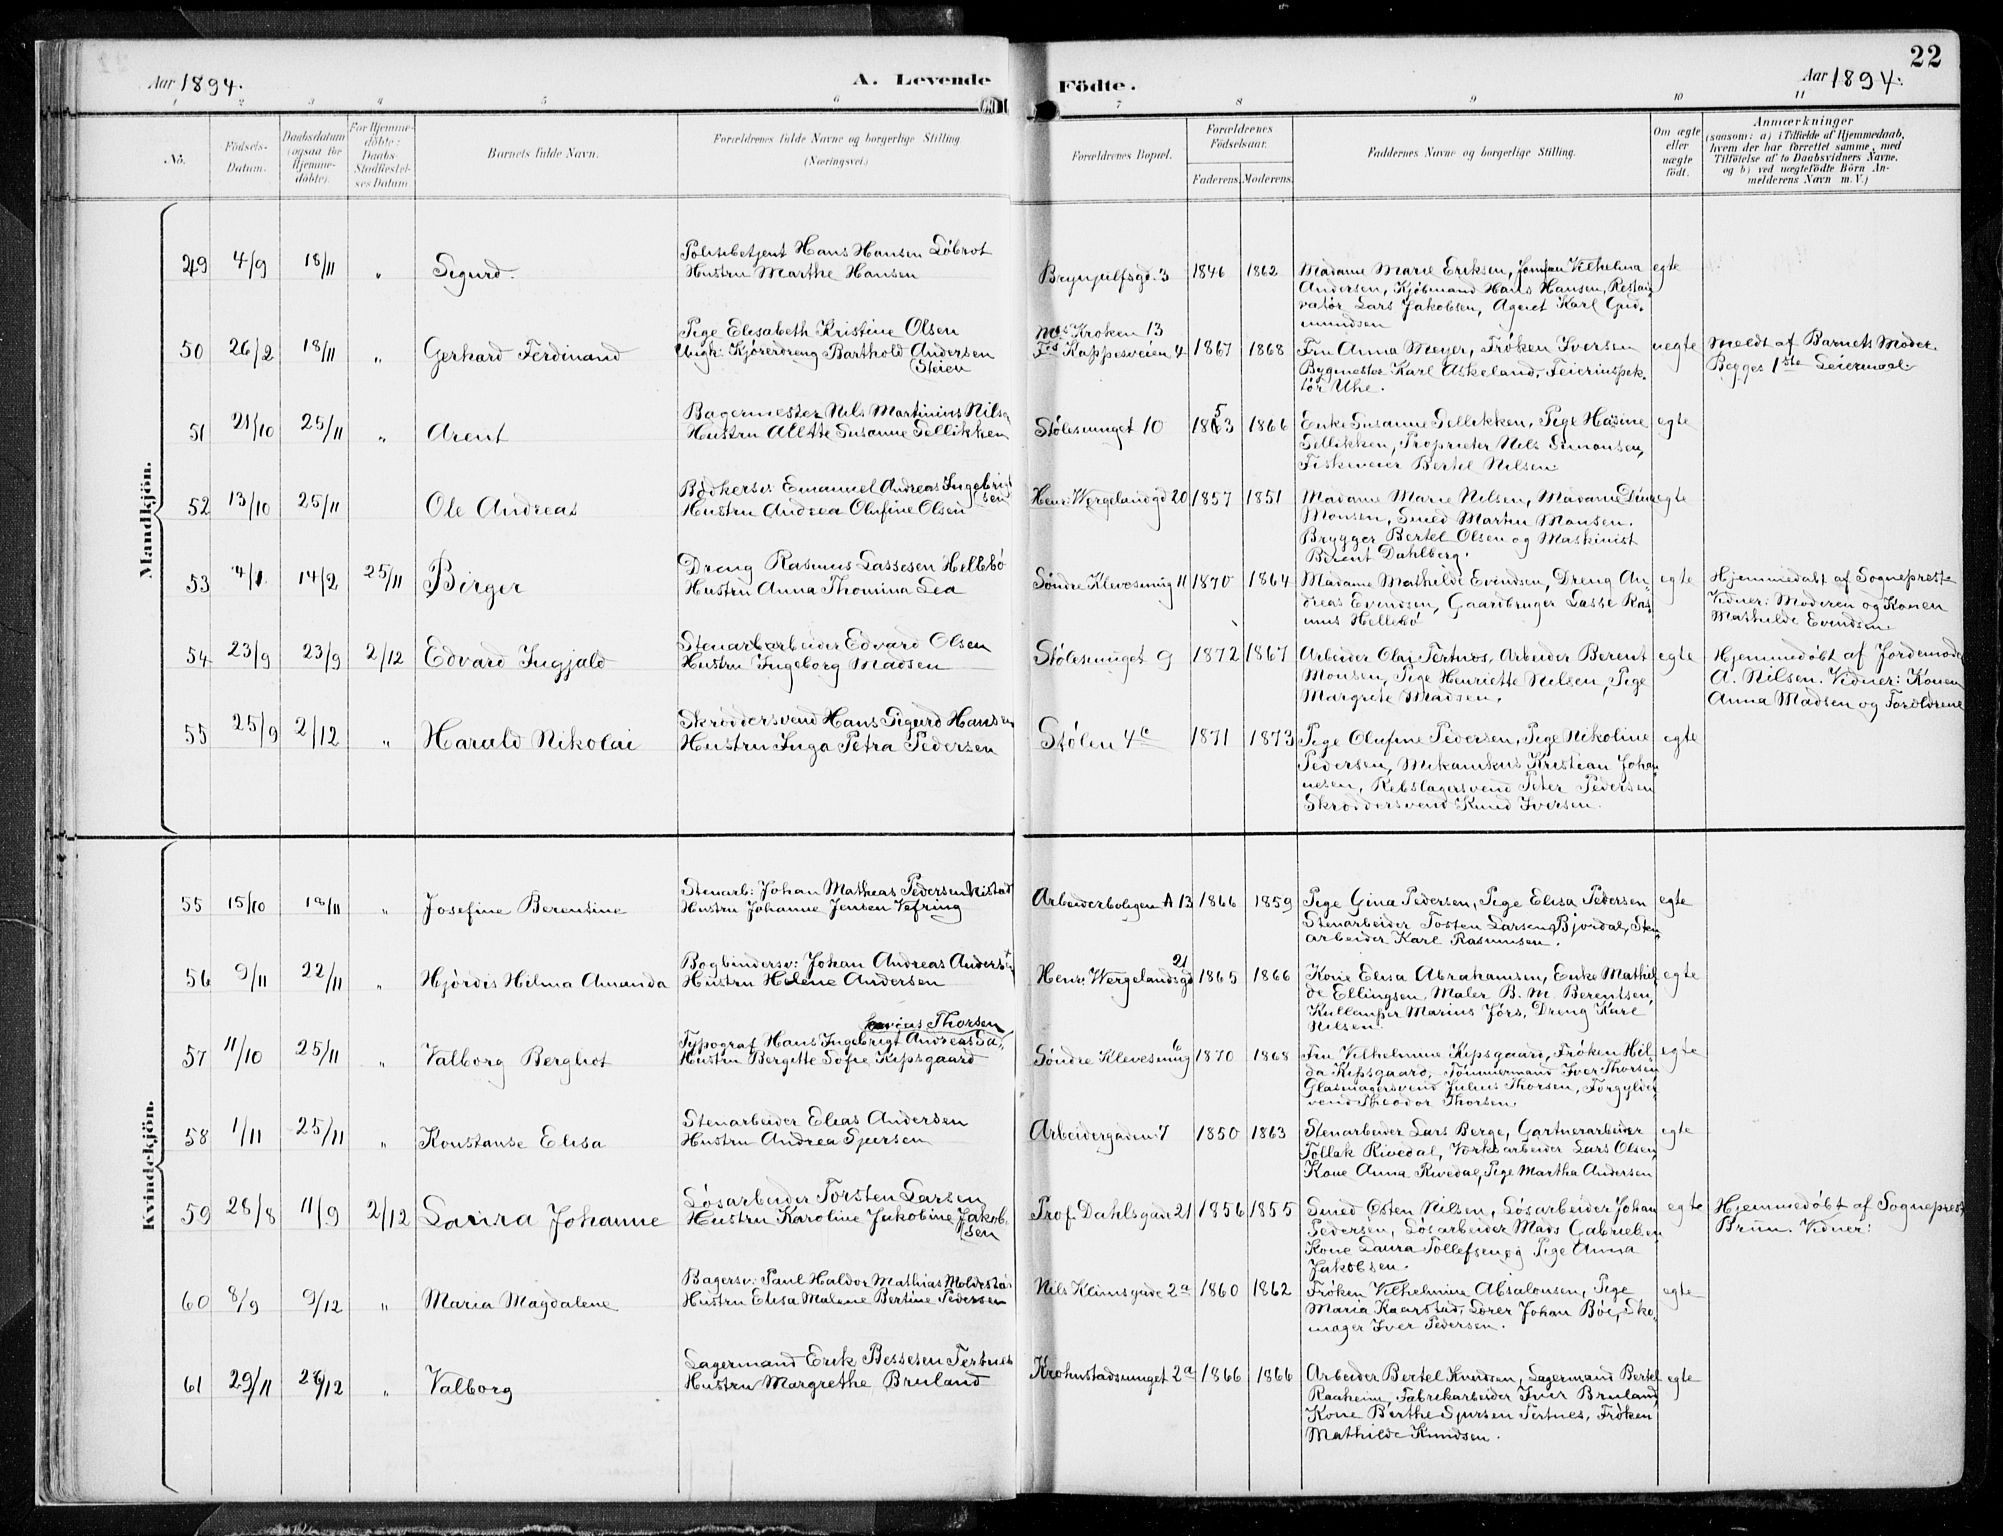 22
Aar 1894.
A. Levende
Födte.
Aar 1894.
1 2 3 4 5 6 7 8 9 10 11
No.
Födsels-
Datum.
Daabsdatum
(ogsaa for
Hjemme-
döbte).
For Hjemme-
döbte:
Daabs-
Stadfæstel-
ses Datum
Barnets fulde Navn.
Forældrenes fulde Navne og borgerlige Stilling
(Næringsvei.)
Forældrenes Bopæl.
Forældrenes
Födselsaar.
Faderens. Moderens.
Faddernes Navne og borgerlige Stilling.
Om ægte
eller
uægte
födt.
Anmærkninger
(saasom: a) i Tilfælde af Hjemmedaab,
hvem der har forrettet samme, med
Tilföielse af to Daabsvidners Navne,
og b) ved uægtefödte Börn An-
melderens Navn m. V.)
Mandkjön.
49 4/9 18/11 " Sigurd.
Politibetjent Hans Hansen Løbrot
Hustru Marthe Hansen
Brynjulfsgd. 3 1846 1862
Madame Marie Eriksen, Jomfru Vilhelmina
Andersen, Kjøbmand Hans Hansen, Restau-
ratør Lars Jakobsen, Agent Karl Gud-
mundsen
egte
50 26/2 18/11 " Gerhard Ferdinand
Pige Elisabeth Kristine Olsen
Ungk: Kjøredreng Barthold Andersen
Steien
Ms Kroken 13
Fs Kappesveien 4 1867 1868
Fru Anna Meyer, Frøken Iversen
Bygmester Karl Askeland, Feierinspek-
tør Uhe.
uegte
Meldt af Barnets Moder
Begges 1ste Leiermaal.
51 21/10 25/11 " Arent
Bagermester Nils Martinius Nilsen
Hustru Alette Susanne Sellikken
Stølesmuget 10 1853 1866
Enke Susanne Sellikken, Pige Hasine
Sellikken, Proprietær Nils Simonsen,
Fiskeveier Bertel Nilsen.
egte
52 13/10 25/11 Ole Andreas
Bødkersv: Emanuel Andreas Ingebrigt
sen
Hustru Andrea Olufine Olsen
Henr: Wergelandgd 20 1857 1851
Madame Marie Nilsen, Madame Dina
Monsen, Smed Martin Monsen.
Brygger Bertel Olsen og Maskinist
Berent Dahlberg.
egte
53 4/1 14/2 25/11 Birger
Dreng Rasmus Lassesen Hellebø
Hustru Anna Thomina Lea
Søndre Klevesmug 11 1870 1864
Madame Mathilde Evendsen, Dreng An-
dreas Evendsen, Gaardbruger Lasse Ras-
mus Hellebø
egte
Hjemmedøbt af Sogneprest
Vidner: Moderen og Konen
Mathilde Evendsen.
54 23/9 23/9 2/12 Edvard Ingjald
Stenarbarbeider Edvard Olsen
Hustru Ingeborg Madsen
Stølesmuget 9 1872 1867
Arbeider Olai Tertnes, Arbeider Berent
Monsen, Pige Henriette Nilsen, Pige
Margrete Madsen.
egte
Hjemmedøbt af Jordemoder
A. Nilsen. Vidner: Konen
Anna Madsen og Forældrene
55 25/9 2/12 " Harald Nikolai
Skræddersvend Hans Sigurd Hansen
Hustru Inga Petra Pedersen
Stølen 4c 1871 1873
Pige Olufine Pedersen, Pige Nikoline
Pedersen, Mekanikus Kristian Johan-
nesen, Rebslagersvend Peter Pedersen
Skræddersvend Knud Iversen.
egte
Kvindekjön.
55 15/10 18/11 " Josefine Berentine
Stenarb: Johan Mathias Pedersen Nistad
Hustru Johanne Jensen Vefring
Arbeiderboligen A 13 1866 1859
Pige Gina Pedersen, Pige Elisa Pedersen
Stenarbeider Tosten Larsen Bjordal, Sten-
arbeider Karl Rasmussen.
egte
56 9/11 22/11 " Hjørdis Hilma Amanda
Bogbindersv: Johan Andreas Anders
Hustru Helene Andersen
Henr. Wergelandsgd 21 1865 1866
Kone Elisa Abrahamsen, Enke Mathil-
de Ellingsen, Maler B. M. Berentsen,
Kullemper Marius Jørs, Dreng Karl
Nilsen.
egte
57 11/10 25/11 " Valborg Bergliot
Typograf Hans Ingebrigt Andreas Za-
karias Thorsen
Hustru Bergitte Sofie Kipsgaard
Søndre Klevesmug 6 1870 1868
Fru Vilhelmine Kipsgaard, Frøken Hil-
da Kipsgaard, Tømmermand Iver Thorsen,
Glasmagersvend Julius Thorsen, Forgylder-
svend Theodor Thorsen.
egte
58 1/11 25/11 " Konstanse Elisa
Stenarbeider Elias Andersen
Hustru Andrea Sjursen
Arbeidergaden 7 1850 1863
Stenarbeider Lars Berge, Gartnerarbeider
Tollak Rivedal, Værksarbeider Lars Olsen,
Kone Anna Rivedal, Pige Martha Andersen
egte
59 28/8 11/9 2/12 Laura Johanne
Løsarbeider Torsten Larsen
Hustru Karoline Jakobine Jakob-
sen
Prof. Dahlsgade 21 1856 1855
Smed Østen Nilsen, Løsarbeider Johan
Pedersen, Løsarbeider Mads Gabrielsen
Kone Laura Tollefsen og Pige Anna
Jakobsen.
egte
Hjemmedøbt af Sogneprest
Brun. Vidner:
60 8/9 9/12 " Maria Magdalene
Bagersv: Paul Haldor Mathias Moldestad
Hustru Elisa Malene Bertine Pedersen
Nils Klimsgade 2a 1860 1862
Frøken Vilhelmine Absalonsen, Pige
Maria Kaarstad, Lærer Johan Bøe, Sko-
mager Iver Pedersen.
egte
61 29/11 26/12 " Valborg
Lagermand Erik Bessesen Tertnes
Hustru Margrethe Bruland
Krohnstadsmuget 2a 1866 1866
Arbeider Bertel Knudsen, Lagermand Bertel
Raaheim, Fabrikarbeider Iver Bruland,
Kone Berthe Sjursen Tertnes, Frøken
Mathilde Knudsen.
egte